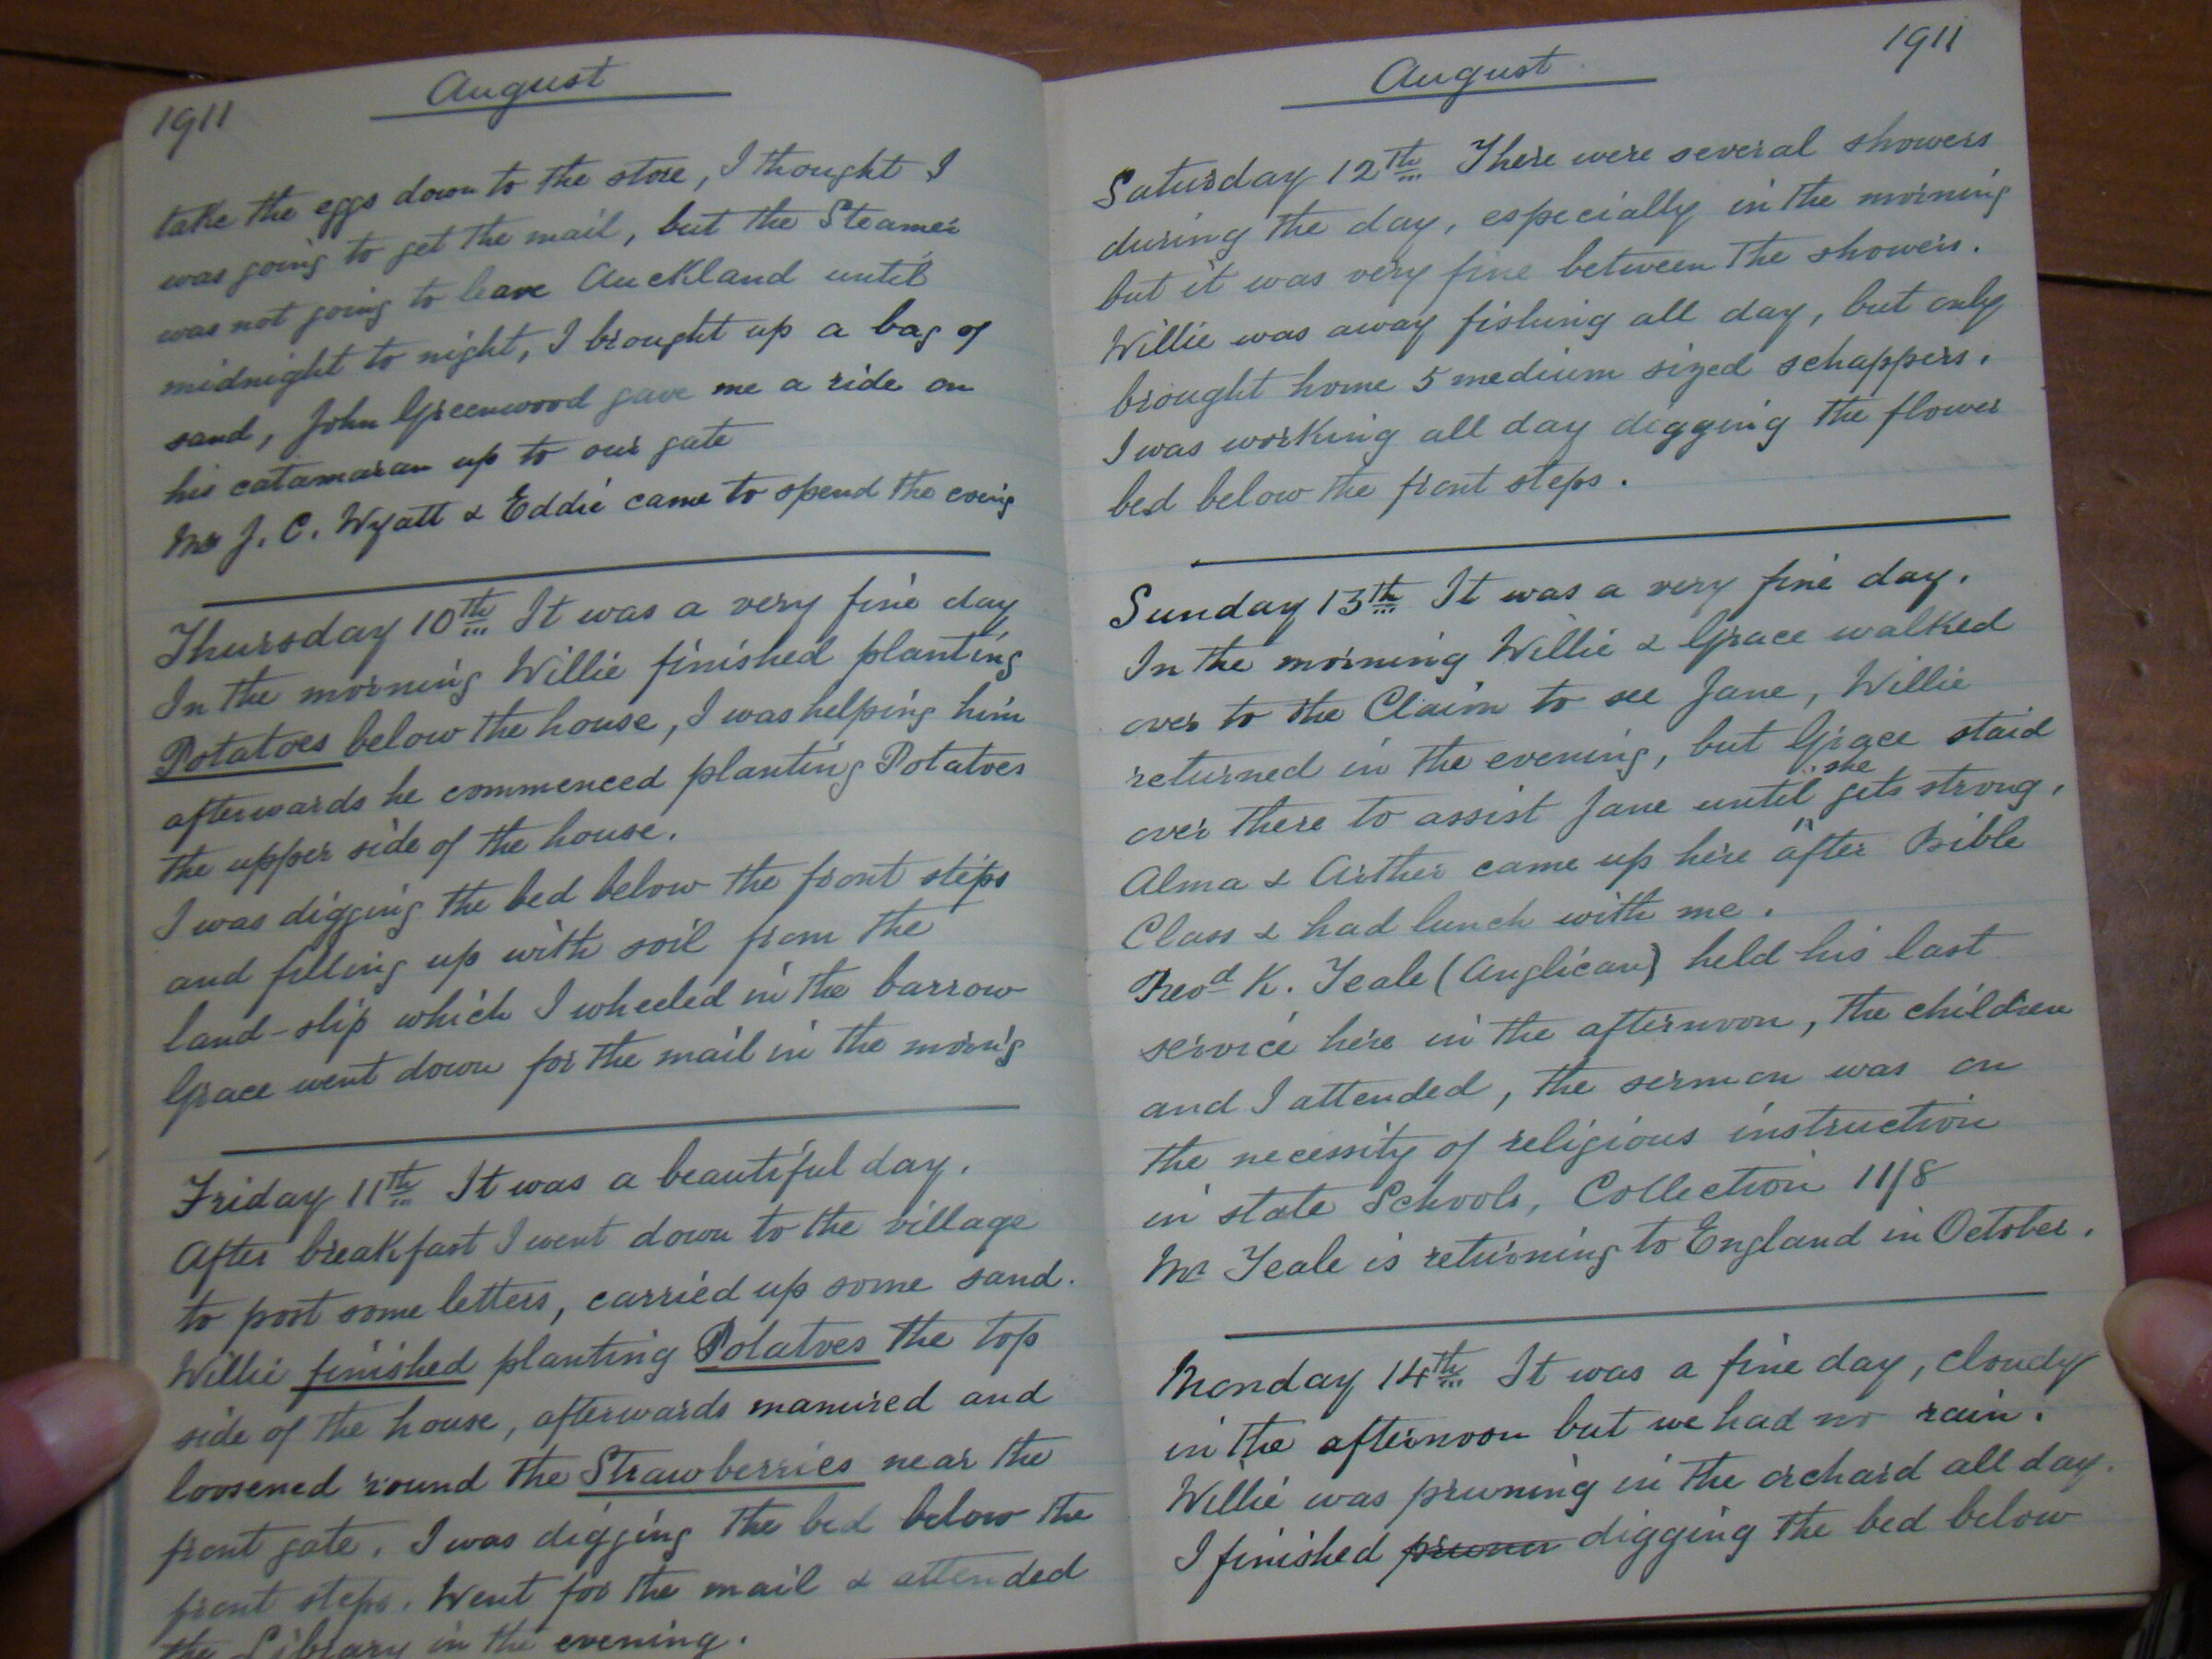 1911
August
take the eggs down to the store, I thought I
was going to get the mail, but the Steamer
was not going to leave Auckland until
midnight to night, I brought up a bag of
sand, John Greenwood gave me a ride on
his catamaran up to our gate
Mr J. C. Wyatt & Eddie came to spend the eveing
Thursday 10th It was a very fine day
In the morning Willie finished planting
Potatoes below the house, I was helping him
afterwards he commenced planting Potatoes
the upper side of the house.
I was digging the bed below the front steps
and filling up with soil from the
land-slip which I wheeled in the barrow
Grace went down for the mail in the mornig
Friday 11th It was a beautiful day.
After breakfast I went down to the village
to post some letters, carried up some sand.
Willie finished planting Potatoes the top
side of the house, afterwards manured and
loosened round the Strawberries near the
front gate. I was digging the bed below the
front steps. Went for the mail & attended
the Library in the evening.
1911
August
Saturday 12th There were several showers
during the day, especially in the morning
but it was very fine between the showers.
Willie was away fishing all day, but only
brought home 5 medium sized schappers.
I was working all day digging the flower
bed below the front steps.
Sunday 13th It was a very fine day.
In the morning Willie & Grace walked
over to the Claim to see Jane, Willie
returned in the evening, but Grace staid
over there to assist Jane until she gets strong.
Alma & Arther came up here after Bible
Class & had lunch with me.
Revd K. Teale (Anglican) held his last
service here in the afternoon, the children
and I attended, the sermon was on
the necessity of religious instruction
in state Schools, Collection 11/8
Mr Teale is returning to England in October.
Monday 14th It was a fine day, cloudy
in the afternoon but we had no rain.
Willie was pruning in the orchard all day.
I finished prunin digging the bed below